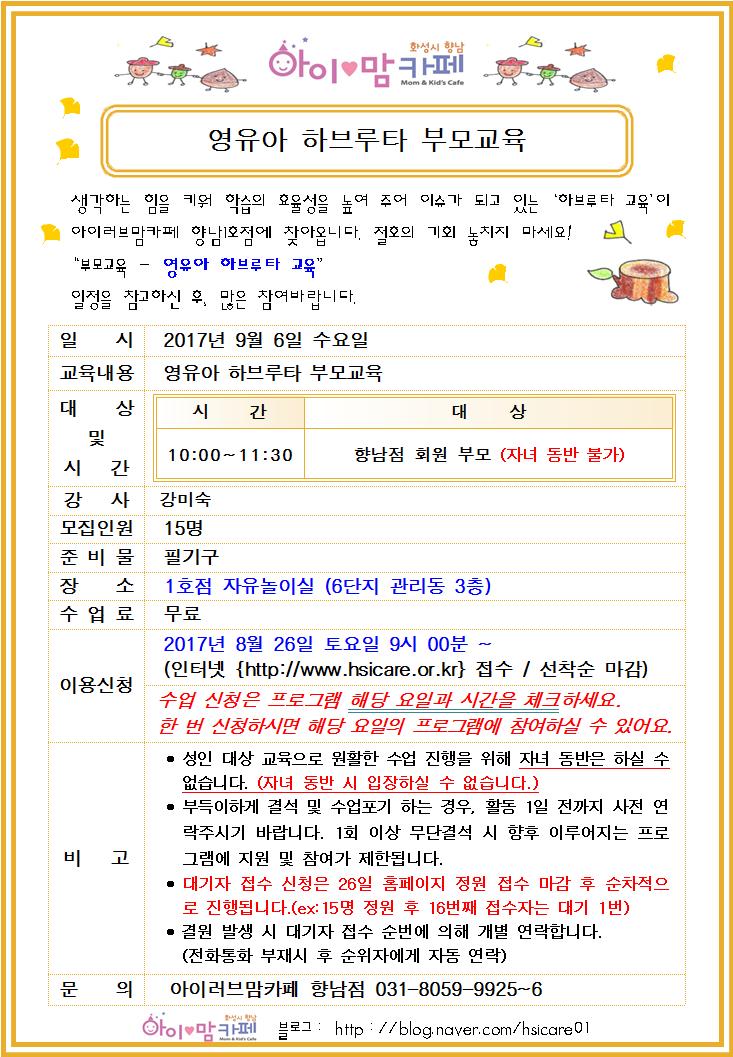 화성시 향남
아이♥맘 카페
Mom & Kid's Cafe
영유아 하브루타 부모교육
생각하는 힘을 키워 학습의 효율성을 높여 주어 이슈가 되고 있는 '하브루타 교육'이
아이러브맘카페 향남1호점에 찾아옵니다. 절호의 기회 놓치지 마세요!
"부모교육 - 영유아 하브루타 교육"
일정을 참고하신 후, 많은 참여바랍니다.
일 시 2017년 9월 6일 수요일
교육내용 영유아 하브루타 부모교육
대 상
및
시 간
시 간 대 상
10:00~11:30 향남점 회원 부모 (자녀 동반 불가)
강 사 강미숙
모집인원 15명
준 비 물 필기구
장 소 1호점 자유놀이실 (6단지 관리동 3층)
수 업 료 무료
이용신청
2017년 8월 26일 토요일 9시 00분 ~
(인터넷 {http://www.hsicare.or.kr} 접수 / 선착순 마감)
수업 신청은 프로그램 해당 요일과 시간을 체크하세요.
한 번 신청하시면 해당 요일의 프로그램에 참여하실 수 있어요.
비 고
• 성인 대상 교육으로 원활한 수업 진행을 위해 자녀 동반은 하실 수
없습니다. (자녀 동반 시 입장하실 수 없습니다.)
• 부득이하게 결석 및 수업포기 하는 경우, 활동 1일 전까지 사전 연
락주시기 바랍니다. 1회 이상 무단결석 시 향후 이루어지는 프로
그램에 지원 및 참여가 제한됩니다.
• 대기자 접수 신청은 26일 홈페이지 정원 접수 마감 후 순차적으
로 진행됩니다.(ex:15명 정원 후 16번째 접수자는 대기 1번)
• 결원 발생 시 대기자 접수 순번에 의해 개별 연락합니다.
(전화통화 부재시 후 순위자에게 자동 연락)
문 의 아이러브맘카페 향남점 031-8059-9925~6
화성시 향남
아이♥맘 카페
Mom & Kid's Cafe
블로그 : http://blog.naver.com/hsicare01